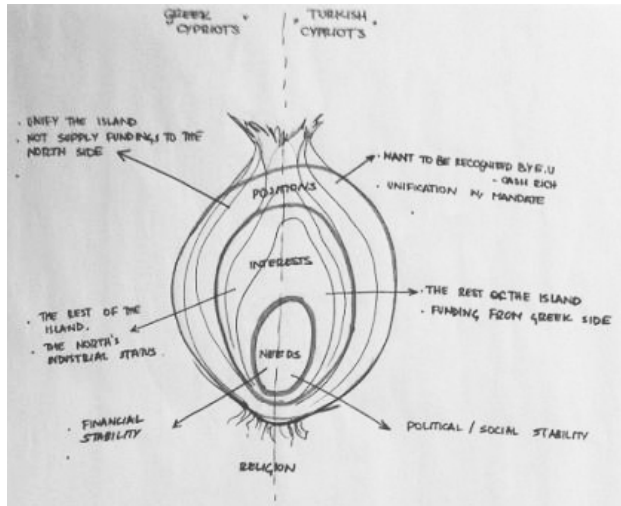 GREEK
CYPRIOTS
TURKISH
CYPRIOTS
· UNIFY THE ISLAND
· NOT SUPPLY FUNDINGS TO THE
NORTH SIDE
· WANT TO BE RECOGNISED BY E.U
- CASH RICH
· UNIFICATION W/ MANDATE
POSITIONS
INTERESTS
· THE REST OF THE
ISLAND.
· THE NORTH'S
INDUSTRIAL STATUS.
· THE REST OF THE ISLAND
· FUNDING FROM GREEK SIDE
NEEDS
· FINANCIAL
STABILITY
POLITICAL / SOCIAL STABILITY
RELIGION